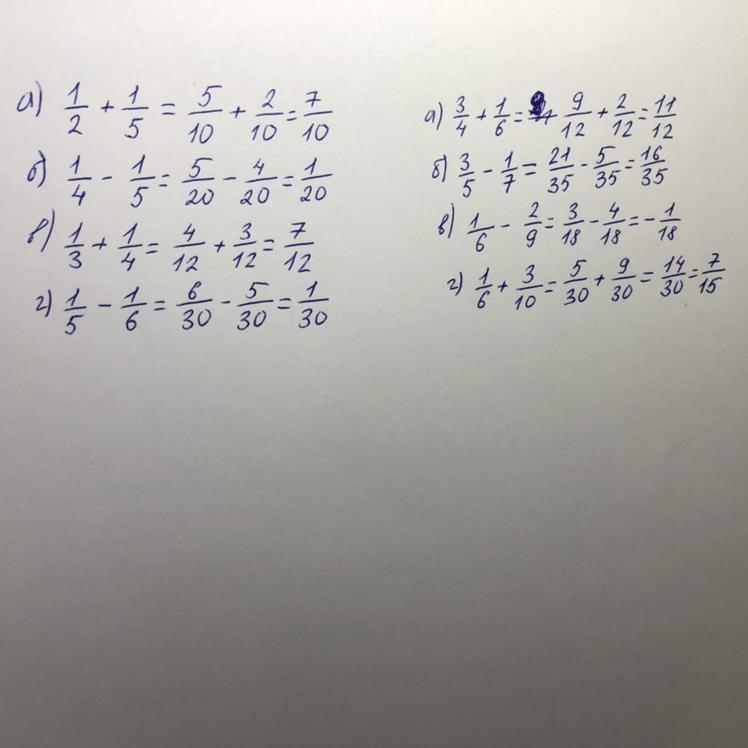 а) 1/2 + 1/5 = 5/10 + 2/10 = 7/10
б) 1/4 - 1/5 = 5/20 - 4/20 = 1/20
в) 1/3 + 1/4 = 4/12 + 3/12 = 7/12
г) 1/5 - 1/6 = 6/30 - 5/30 = 1/30
а) 3/4 + 1/6 = 9/12 + 2/12 = 11/12
б) 3/5 - 1/7 = 21/35 - 5/35 = 16/35
в) 1/6 - 2/9 = 3/18 - 4/18 = - 1/18
г) 1/6 + 3/10 = 5/30 + 9/30 = 14/30 = 7/15